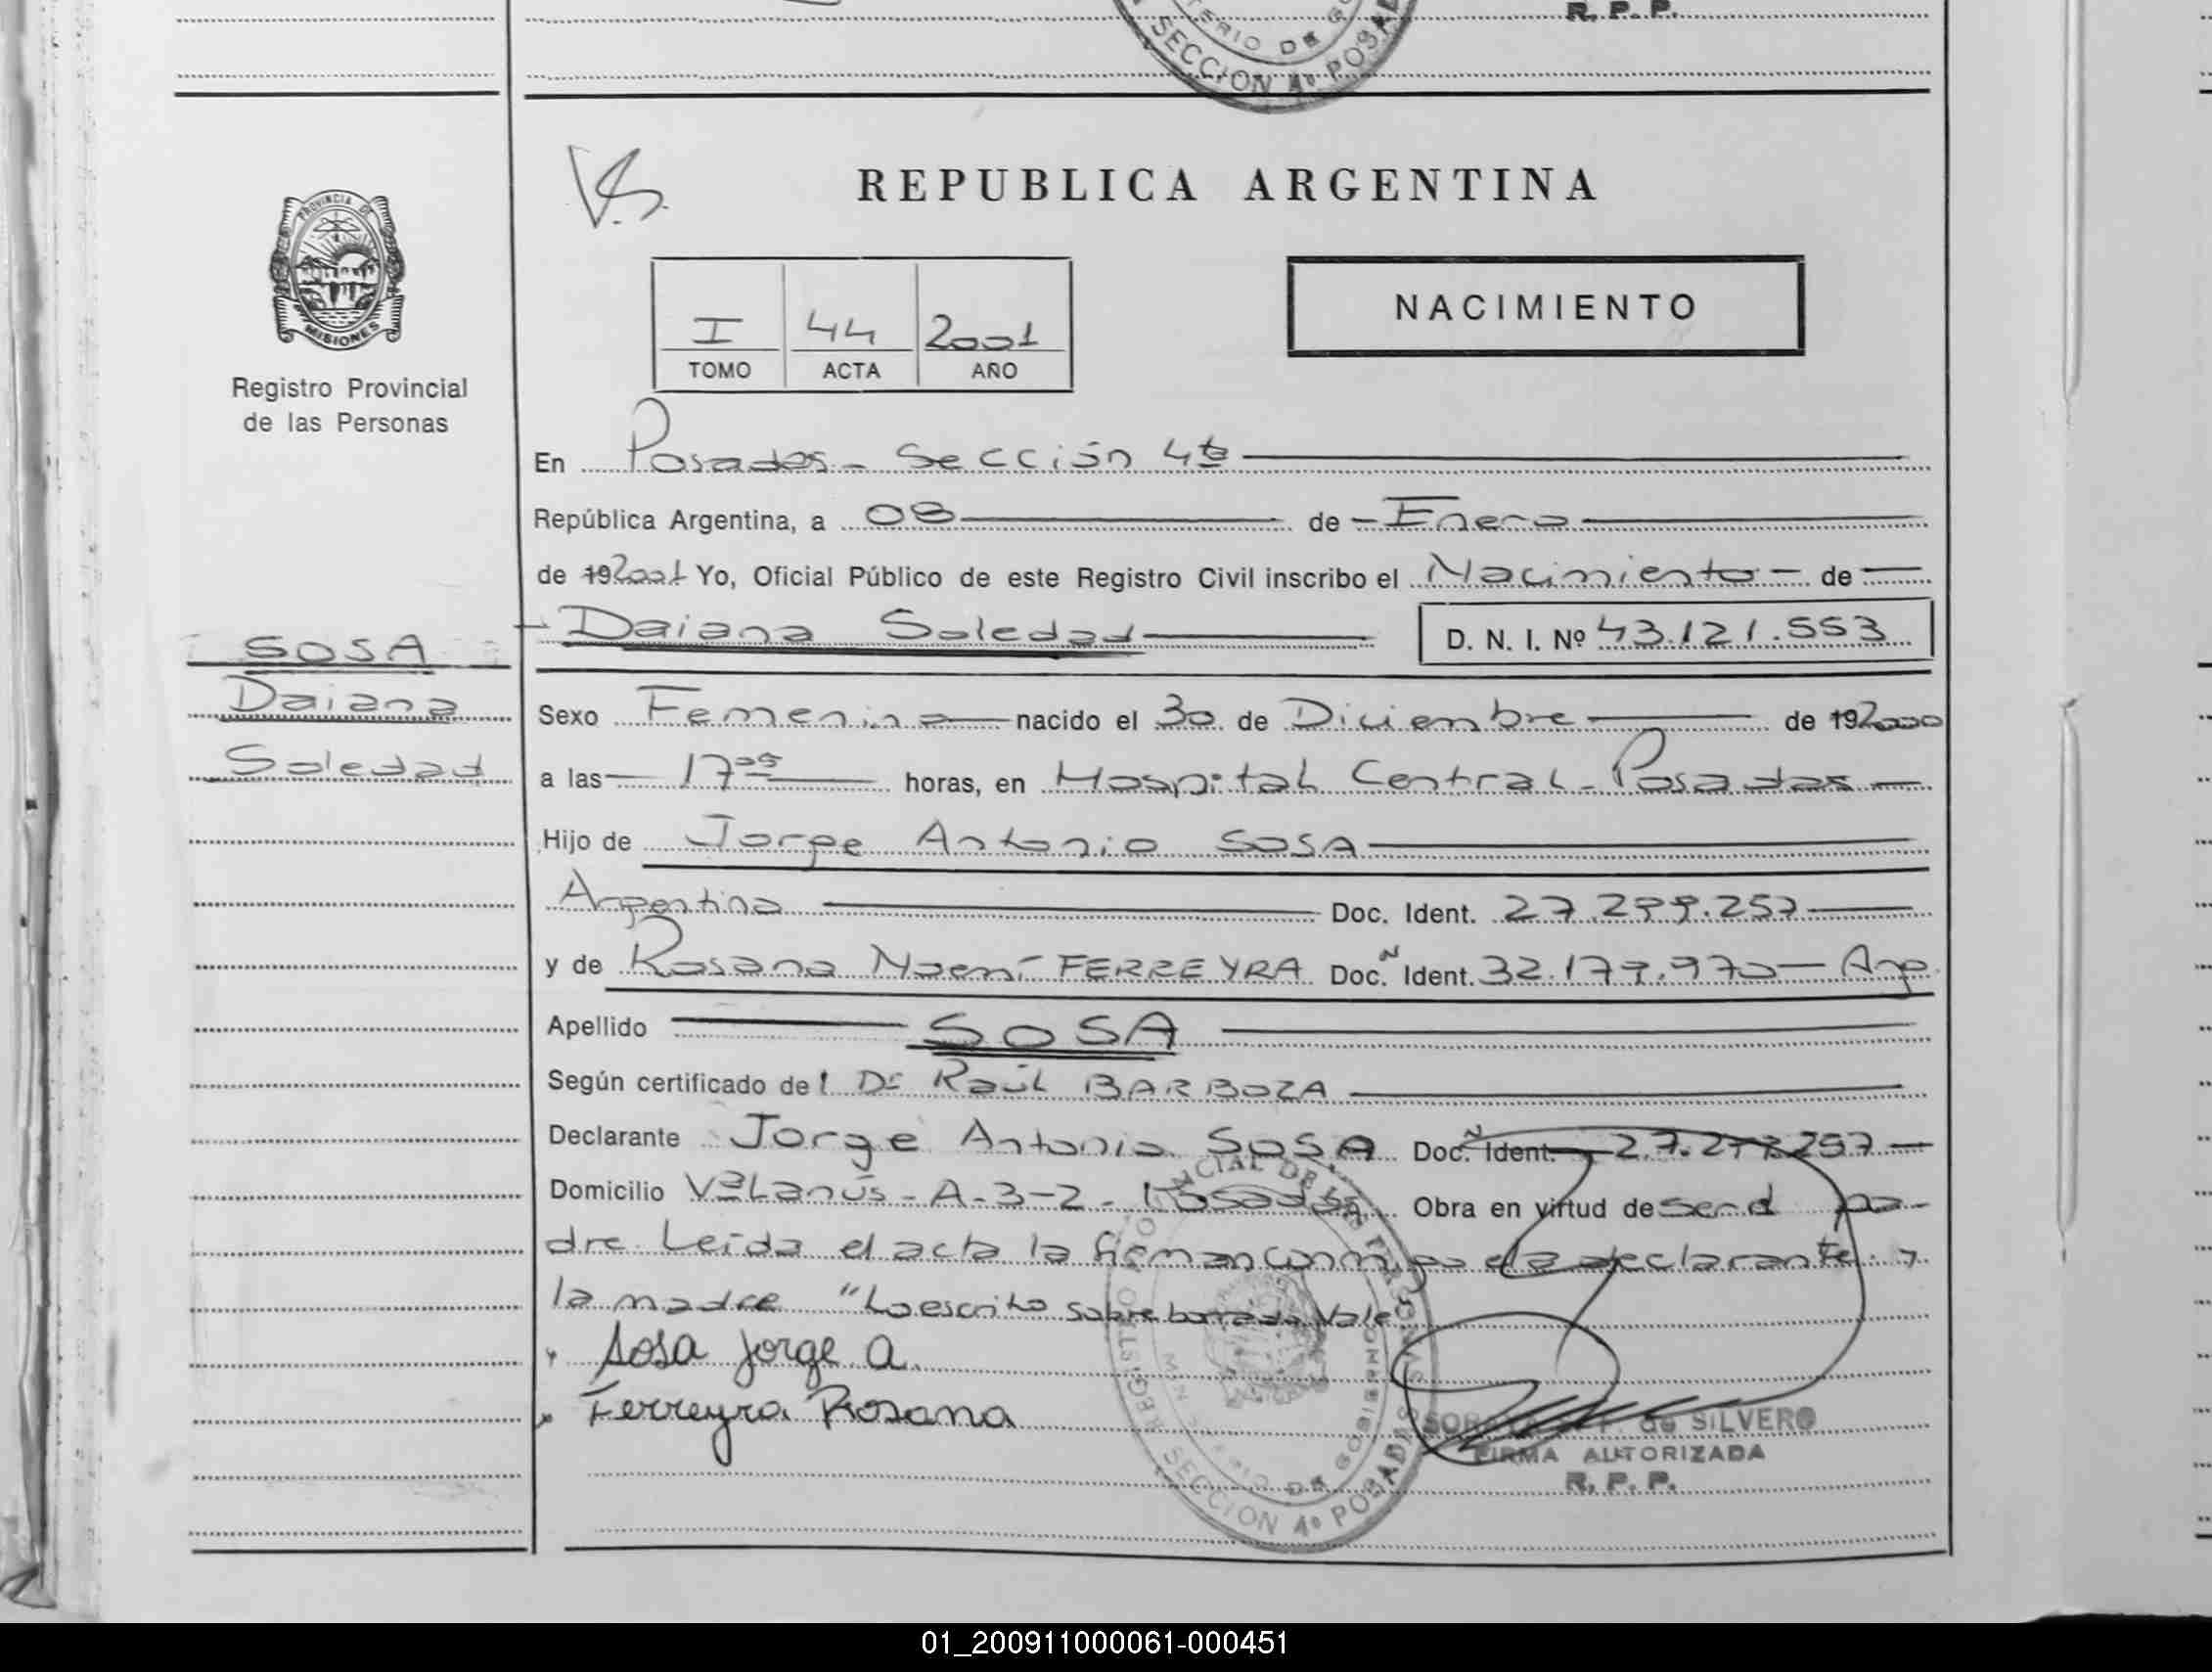 R. P. P.
TERIO DE GO
SECCION 4º POSADAS
V.S.
REPUBLICA ARGENTINA
PROVINCIA DE
MISIONES
Registro Provincial
de las Personas
I 44 2001
TOMO ACTA AÑO
NACIMIENTO
En Posadas - Sección 4ta
República Argentina, a 08 de Enero
de 192001 Yo, Oficial Público de este Registro Civil inscribo el Nacimiento de
Daiana Soledad D. N. I. Nº 43.121.553
SOSA
Daiana
Soledad
Sexo Femenina nacido el 30 de Diciembre de 192000
a las 17 horas, en Hospital Central - Posadas
Hijo de Jorge Antonio SOSA
Argentina Doc. Ident. 27.299.257
y de Rosana Noemí FERREYRA Doc. N Ident. 32.179.970 - Arg.
Apellido SOSA
Según certificado del Dr Raúl BARBOZA
Declarante Jorge Antonio SOSA Doc. N Ident. 27.299.257
Domicilio Vª Lanús - A-3-2 - Posadas Obra en virtud de ser el pa-
dre Leída el acta la firman conmigo el declarante y
la madre "Lo escrito sobre borrado Vale"
Sosa Jorge A.
Ferreyra Rosana
REGISTRO PROVINCIAL DE LAS PERSONAS
MINISTERIO DE GOBIERNO
SECCION 4º POSADAS
de SILVERO
FIRMA AUTORIZADA
R. P. P.
01_200911000061-000451